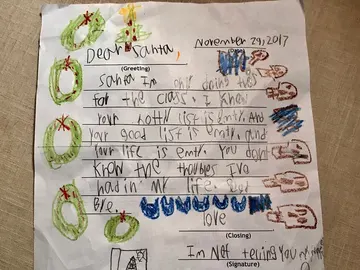 November 29, 2017
Dear Santa,
(Greeting)
Santa Im only doing this
for the class. I know
your notty list is emty. And
your good list is emty. and
your life is emty. You dont
know the troubles Ive
had in my life. Good
bye.
love
(Closing)
Im Not telling you my name
(Signature)